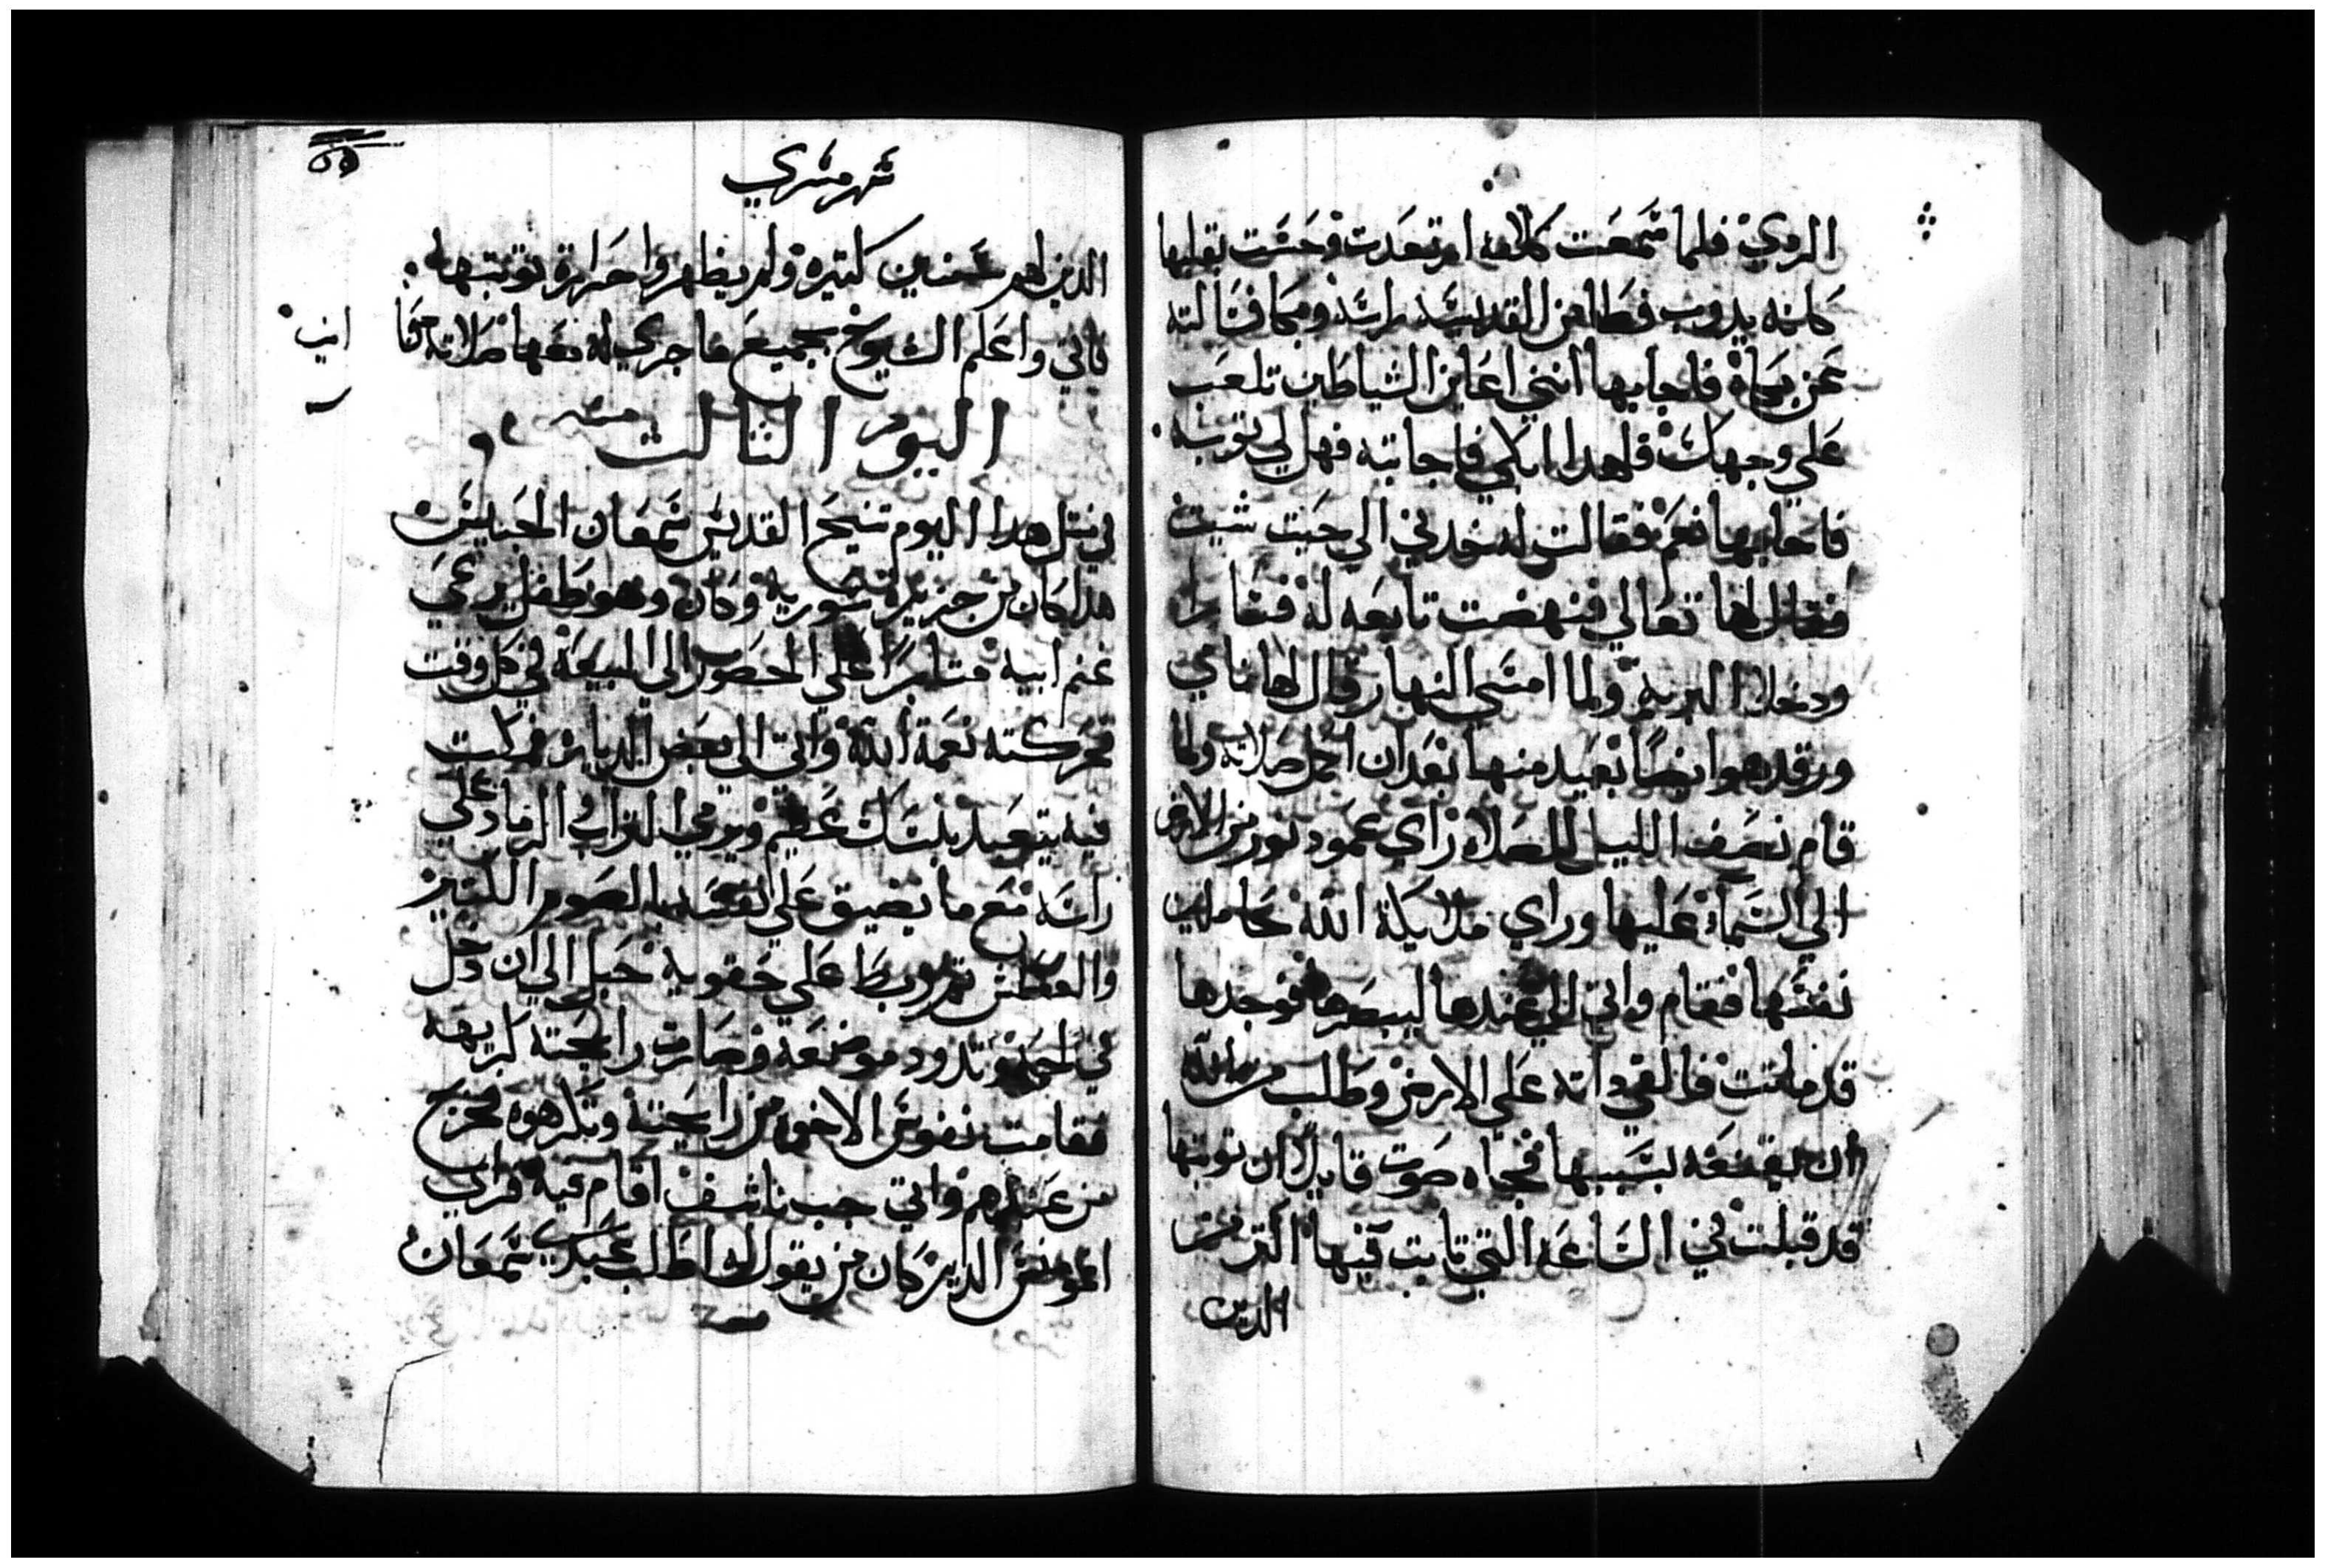 الردي فلما سمعت كلامه ارتعدت وحست بقلبها
كانه يدوب فطاطي القديس راسه وبكا فسالته
عن بكاه فاجابها انني اعاين الشياطين تلعب
علي وجهك فلهدا ابكي فاجابته فهل لي توبه
فاجابها نعم فقالت له خدني الي حيت شيت
فقال لها تعالي فنهضت تابعه له فسارا
ودخلا البريه ولما امسي النهار قال لها نامي
ورقد هو ايضا بعيد منها بعد ان اكمل صلاته ولما
قام نصف الليل للصلاه راي عمود نور من الارض
الي السما عليها وراي ملايكة الله حاملين
نفسها فقام واتي الي عندها ليبصرها فوجدها
قد ماتت فالقي داته علي الارض وطلب من الله
ان يقنعه بسببها فجاه صوت قايلا ان توبتها
قد قبلت في الساعه التي تابت فيها اكتر من
الدين
شهر مسري
الدين لهم سنين كتيره ولم يظهروا حرارة توبتهم
فاتي واعلم الشيوخ بجميع ما جري له معها صلاته معنا
امين
اليوم الثالت مسري
في متل هدا اليوم تنيح القديس سمعان الحبيس
هدا كان من جزيرة سوريه وكان وهو طفل يرعي
غنم ابيه متابرا علي الحضور الي البيعه في كل وقت
فحركته نعمة الله واتي الي بعض الديارة فمكت
فيه يتعبد بنسك عظيم ويرمي التراب والرماد علي
راسه مع ما يضيق علي نفسه بالصوم الكتير
والعطش تم ربط علي حقويه حبل الي ان دخل
في لحمه وتدود موضعه وصارت رايحته كريهه
فقامت نفوس الاخوه من رايحته وتكرهوه فخرج
من عندهم واتي جب ناشف اقام فيه فراي
القومنص الدير كان من يقول له اطلب عبدي سمعان